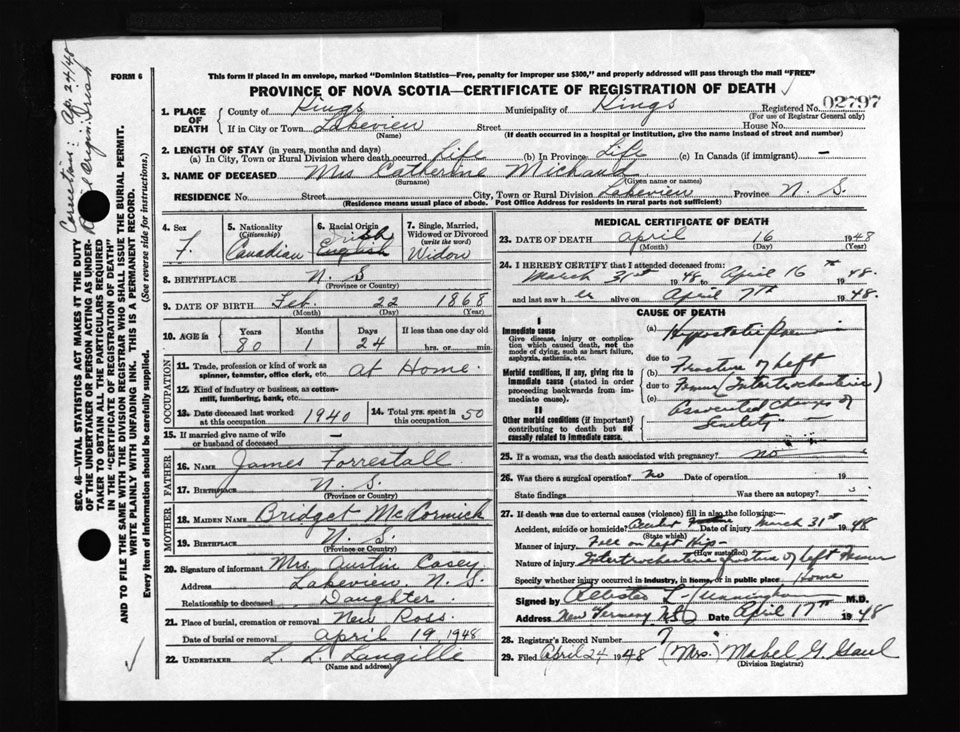 FORM 6
This form if placed in an envelope, marked "Dominion Statistics—Free, penalty for improper use $300," and properly addressed will pass through the mail "FREE"
PROVINCE OF NOVA SCOTIA—CERTIFICATE OF REGISTRATION OF DEATH
Correction: Ap. 24/48
Racial Origin: Irish
SEC. 46—VITAL STATISTICS ACT MAKES IT THE DUTY
OF THE UNDERTAKER OR PERSON ACTING AS UNDER-
TAKER TO OBTAIN ALL THE PARTICULARS REQUIRED
IN THE "CERTIFICATE OF REGISTRATION OF DEATH"
AND TO FILE THE SAME WITH THE DIVISION REGISTRAR WHO SHALL ISSUE THE BURIAL PERMIT.
WRITE PLAINLY WITH UNFADING INK. THIS IS A PERMANENT RECORD.
Every item of information should be carefully supplied. (See reverse side for instructions.)
1. PLACE OF DEATH
County of Kings Municipality of Kings Registered No. 02797
(For use of Registrar General only)
If in City or Town Lakeview Street House No.
(Name) (If death occurred in a hospital or institution, give the name instead of street and number)
2. LENGTH OF STAY (in years, months and days)
(a) In City, Town or Rural Division where death occurred Life (b) In Province Life (c) In Canada (if immigrant) —
3. NAME OF DECEASED Mrs Catherine Michaud
(Surname) (Given name or names)
RESIDENCE No. Street City, Town or Rural Division Lakeview Province N. S.
(Residence means usual place of abode. Post Office Address for residents in rural parts not sufficient)
4. Sex F.
5. Nationality (Citizenship) Canadian
6. Racial Origin Irish English
7. Single, Married, Widowed or Divorced (write the word) Widow
8. BIRTHPLACE N. S
(Province or Country)
9. DATE OF BIRTH Feb. 22 1868
(Month) (Day) (Year)
10. AGE in Years Months Days If less than one day old
80 1 24 hrs. or min
OCCUPATION
11. Trade, profession or kind of work as spinner, teamster, office clerk, etc. At Home.
12. Kind of industry or business, as cotton-mill, lumbering, bank, etc.
13. Date deceased last worked at this occupation 1940
14. Total yrs. spent in this occupation 50
15. If married give name of wife or husband of deceased —
FATHER
16. NAME James Forrestall
17. BIRTHPLACE N. S.
(Province or Country)
MOTHER
18. MAIDEN NAME Bridget McCormick
19. BIRTHPLACE N. S.
(Province or Country)
20. Signature of informant Mrs. Austin Casey
Address Lakeview, N. S.
Relationship to deceased Daughter.
21. Place of burial, cremation or removal New Ross.
Date of burial or removal April 19, 1948
22. UNDERTAKER L. L. Langille
(Name and address)
MEDICAL CERTIFICATE OF DEATH
23. DATE OF DEATH April 16 1948
(Month) (Day) (Year)
24. I HEREBY CERTIFY that I attended deceased from:
March 31st 1948 to April 16th 1948.
and last saw her alive on April 7th 1948.
CAUSE OF DEATH
I
Immediate cause
Give disease, injury or complication which caused death, not the mode of dying, such as heart failure, asphyxia, asthenia, etc.
Morbid conditions, if any, giving rise to immediate cause (stated in order proceeding backwards from immediate cause).
II
Other morbid conditions (if important) contributing to death but not causally related to immediate cause.
(a) Hypostatic
due to
(b) Fracture of Left
due to Femur (Intertrochanteric)
(c)
Associated changes of
Senility
25. If a woman, was the death associated with pregnancy? no
26. Was there a surgical operation? no Date of operation 19
State findings Was there an autopsy?
27. If death was due to external causes (violence) fill in also the following:—
Accident, suicide or homicide? Date of injury March 31st 1948
(State which)
Manner of injury Fell on Left Hip
(How sustained)
Nature of injury Intertrochanteric fracture of Left Femur
Specify whether injury occurred in industry, in home, or in public place Home
Signed by L. Cunningham M.D.
Address New Germany N.S. Date April 17th 1948
28. Registrar's Record Number 7
29. Filed April 24 1948 (Mrs.) Mabel G.
(Division Registrar)